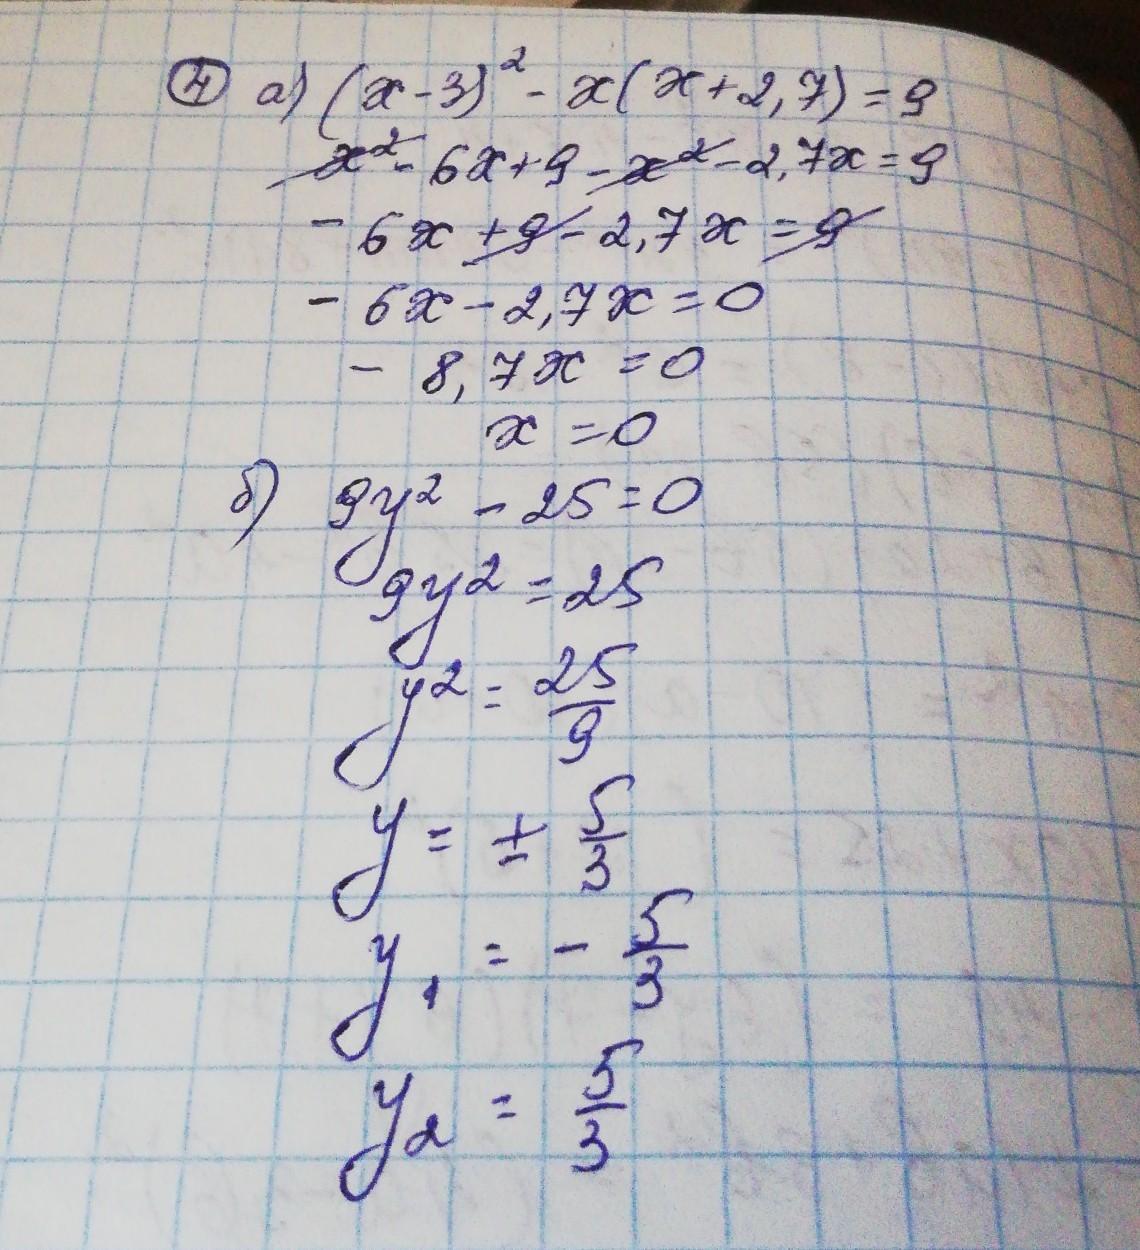 ④ а) (x-3)² - x(x+2,7)=9
x² - 6x+9-x²-2,7x=9
- 6x+9-2,7x=9
- 6x-2,7x=0
- 8,7x=0
x=0
б) 9y² - 25=0
9y²=25
y²=25/9
y=± 5/3
y₁ = - 5/3
y₂ = 5/3